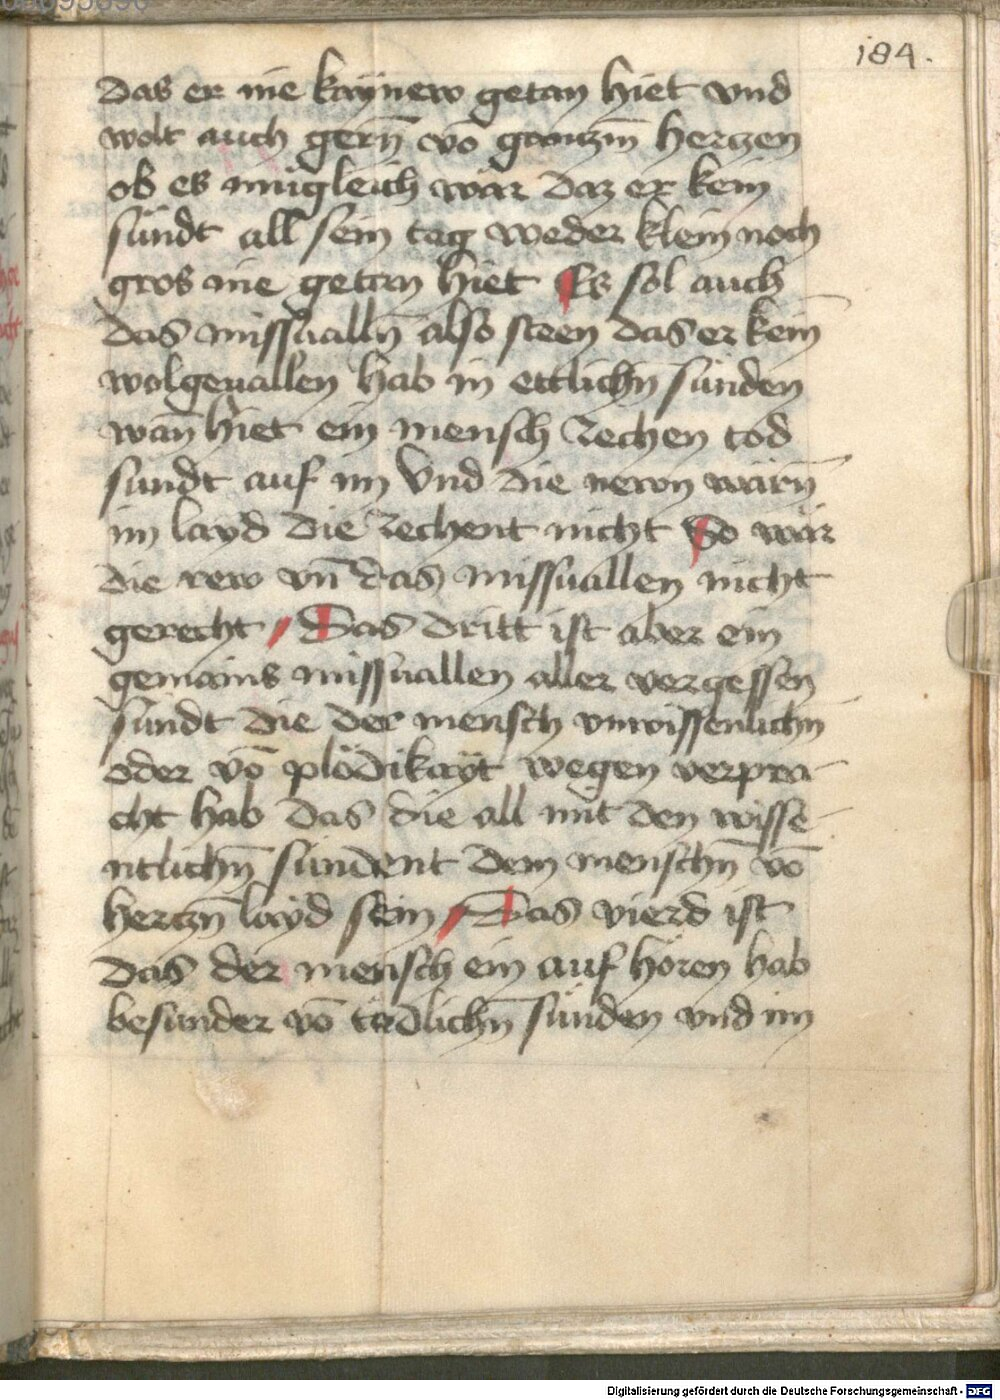 184.
das er nie kaÿnew getan hiet vnd
wolt auch gerñ vō gantzm̄ hertzen
ob es mugleich wär daz er kein
sündt all sein tag weder klein noch
gros nie getan hiet Es sol auch
das missuallñ also steen das er kein
wolgeuallen hab in ettlichn̄ sünden
wañ hiet ein mensch zechen tod
sündt auf im Vnd die newn wärñ
im layd die zechent nicht So wär
die rew vñ das missuallen nicht
gerecht / Das dritt ist aber ein
gemains missuallen aller vergessen
sündt die der mensch vnwissenlichn̄
oder vō plödikayt wegen verpra-
cht hab das die all mit den wisse-
ntlichn̄ sündent dem menschn̄ vō
hertzn̄ layd sein / Das vierd ist
das der mensch ein auf hören hab
besunder vō tödlichn̄ sünden vnd im
Digitalisierung gefördert durch die Deutsche Forschungsgemeinschaft - DFG